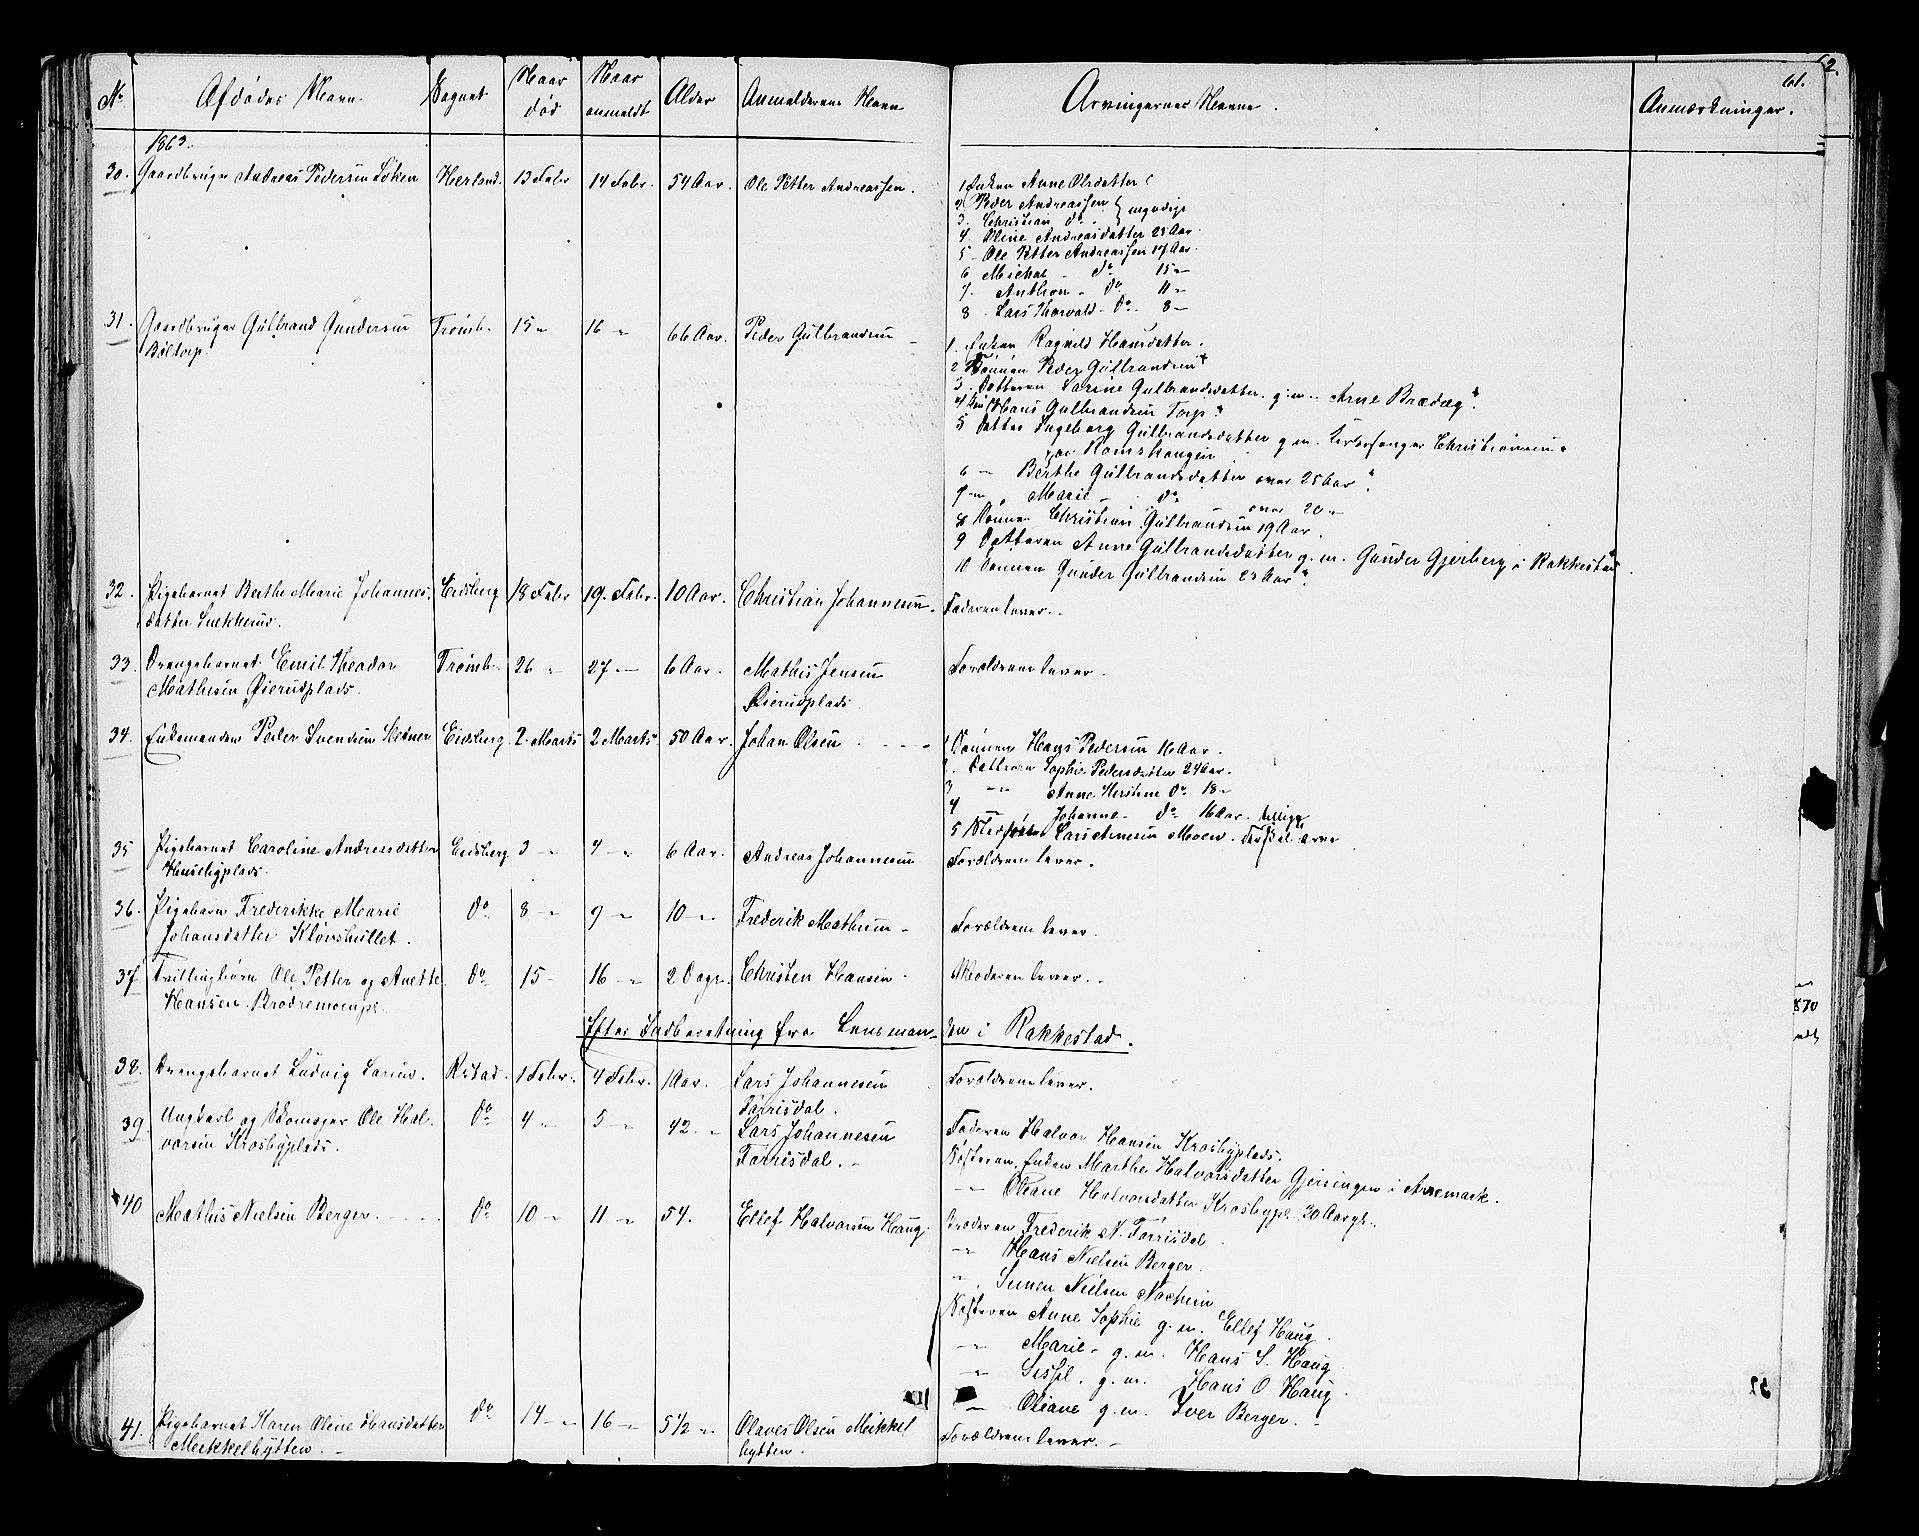 No Afdødes Navn Sognet Naar død Naar anmeldt Alder Anmelderens Navn Arvingernes Navne. Anmærkninger. 61.
1863.
30. Gaardbruger Andreas Pedersen Løken Herland. 13 Febr 14 Febr. 54 Aar. Ole Petter Andreassen.
1 Enken Anne Olsdatter
2 Peder Andreassen } myndige
3. Christian do
4. Oline Andreasdatter 23 Aar.
5 - Ole Petter Andreassen 17 Aar.
6 Michael - do 15 "
7. Anthon - do 11 "
8 - Lars Thorvald - do - 8 "
31. Gaardbruger Gulbrand Gundersen Trømb. 15 " 16 " 66 Aar. Peder Gulbrandsen
Boltorp.
1. Enken Ragnild Hansdatter.
2 Sønnen Peder Gulbrandsen
3. Datteren Karine Gulbrandsdatter. g. m. Arne Brædeg.
4 Søn Hans Gulbrandsen Torp.
5 Datter Ingeborg Gulbrandsdatter g. m. Kirkesanger Christiansen
paa Romshaugen
6 " Berthe Gulbrandsdatter over 25 Aar
7 " Marie do over 20 "
8 Sønnen Christian Gulbrandsen 19 Aar.
9 Datteren Anne Gulbrandsdatter g. m. Gunder Gjerberg i Rakkestad
10 Sønnen Gunder Gulbrandsen 23 Aar.
32. Pigebarnet Berthe Marie Johannes- Eidsberg 18 Febr 19. Febr. 10 Aar. Christian Johannesen. Faderen lever. -
datter Snekkerud.
33. Drengebarnet Emil Theodor Trømb. 26 " 27 - 6 Aar. Mathis Jensen Forældrene lever.
Mathisen Øierudplads. Øierudplads.
34. Enkemanden Peder Svendsen Eidsberg 2. Marts 2 Marts. 50 Aar. Johan Olsen
1 Sønnen Hans Pedersen 16 Aar.
2. Datteren Sophie Pedersdatter 24 Aar.
3 " Anne Kerstine do 18 "
4 Johanne - do 16 Aar.
5 Lars Arnesen Moen. arver
35 Pigebarnet Caroline Andreasdatter Eidsberg 3 " 4 " 6 Aar. Andreas Johannesen Forældrene lever.
Husebyplads.
36. Pigebarn Frederikke Marie do 8 " 9 " 10 " Frederik Mathisen - Forældrene lever.
Johansdatter Kløvshullet.
37 Tvillingbørn Ole Petter og Anette do 15 - 16 " 2 Dage. Christen Hansen. Moderen lever. -
Hansen. Brødremoenpl.
Efter Indberetning fra Lensmanden i Rakkestad.
38. Drengebarnet Ludvig Larsen. Rkstad. 1 Febr. 4 Febr. 1 Aar. Lars Johannesen Forældrene lever.
Førrisdal.
39 Ungkarl og Skomager Ole Hal- do 4 " 5 " 42 " Lars Johannesen
vorsen Krosbyplads. Førrisdal. -
Faderen Halvor Hansen Krosbyplads.
Søsteren, Enken Marthe Halvorsdatter Gjersingen i Aremark.
" Oliane Halvorsdatter Krosbypl. 30 Aar gl.
40 Mathis Nielsen Berger. do 10 " 11 " 54. Ellef Halvorsen Haug.
Broderen Frederik N. Førrisdal.
" Hans Nielsen Berger.
" Simen Nielsen
Søsteren Anne Sophie g. m. Ellef Haug.
" Marie - g. m. Hans S. Haug
" Sissel. g. m. Hans O Haug.
" Oliane g. m. Iver Berger. -
41. Pigebarnet Karen Oline Hansdatter do 14 " 16 " 5 1/2 " Olaves Olsen Mikkel Forældrene lever. -
Mikkelhytten. - hytten.